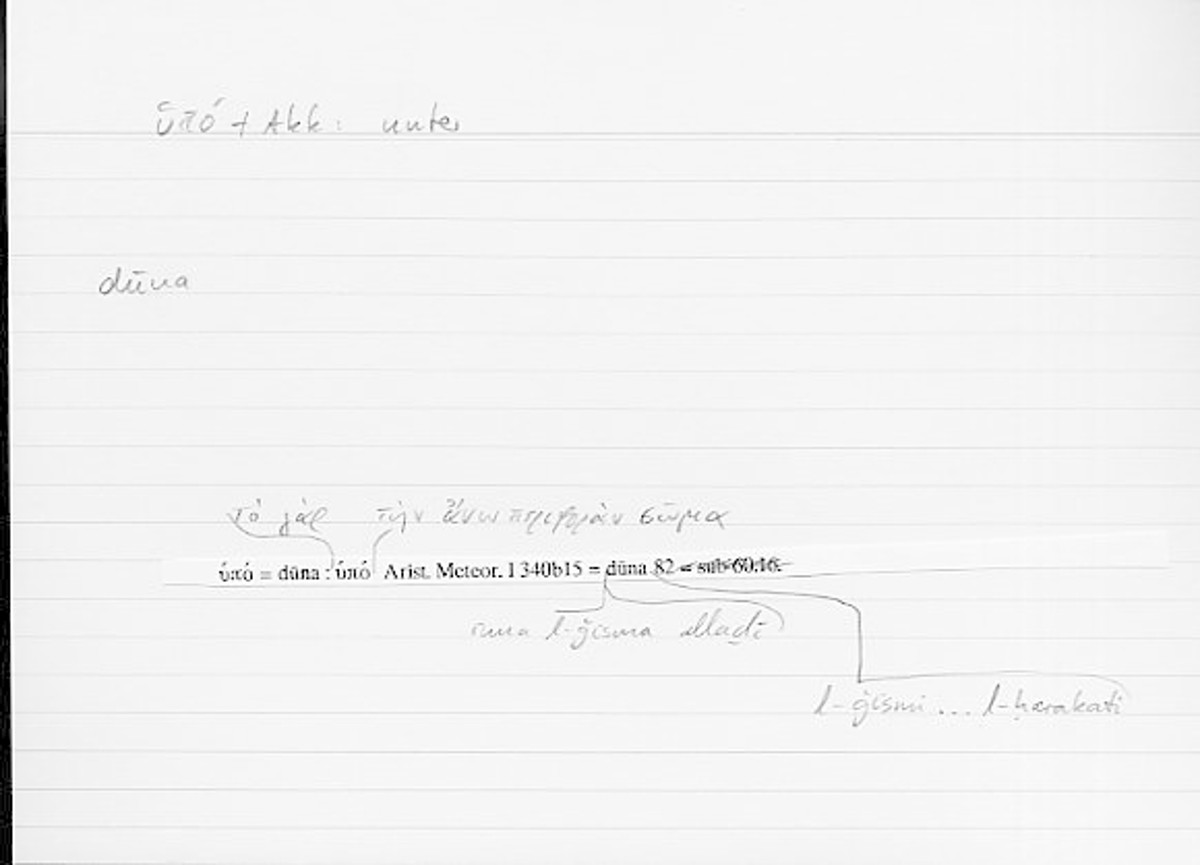 ὑπό + Akk: unter
dūna
τὸ γὰρ τὴν ἄνω περιφορὰν σῶμα
ὑπό = dūna : ὑπό Arist. Meteor. I 340b15 = dūna 82 = sub 60.16.
l-ǧisma allaḏī
l-ǧismi ... l-ḥarakati